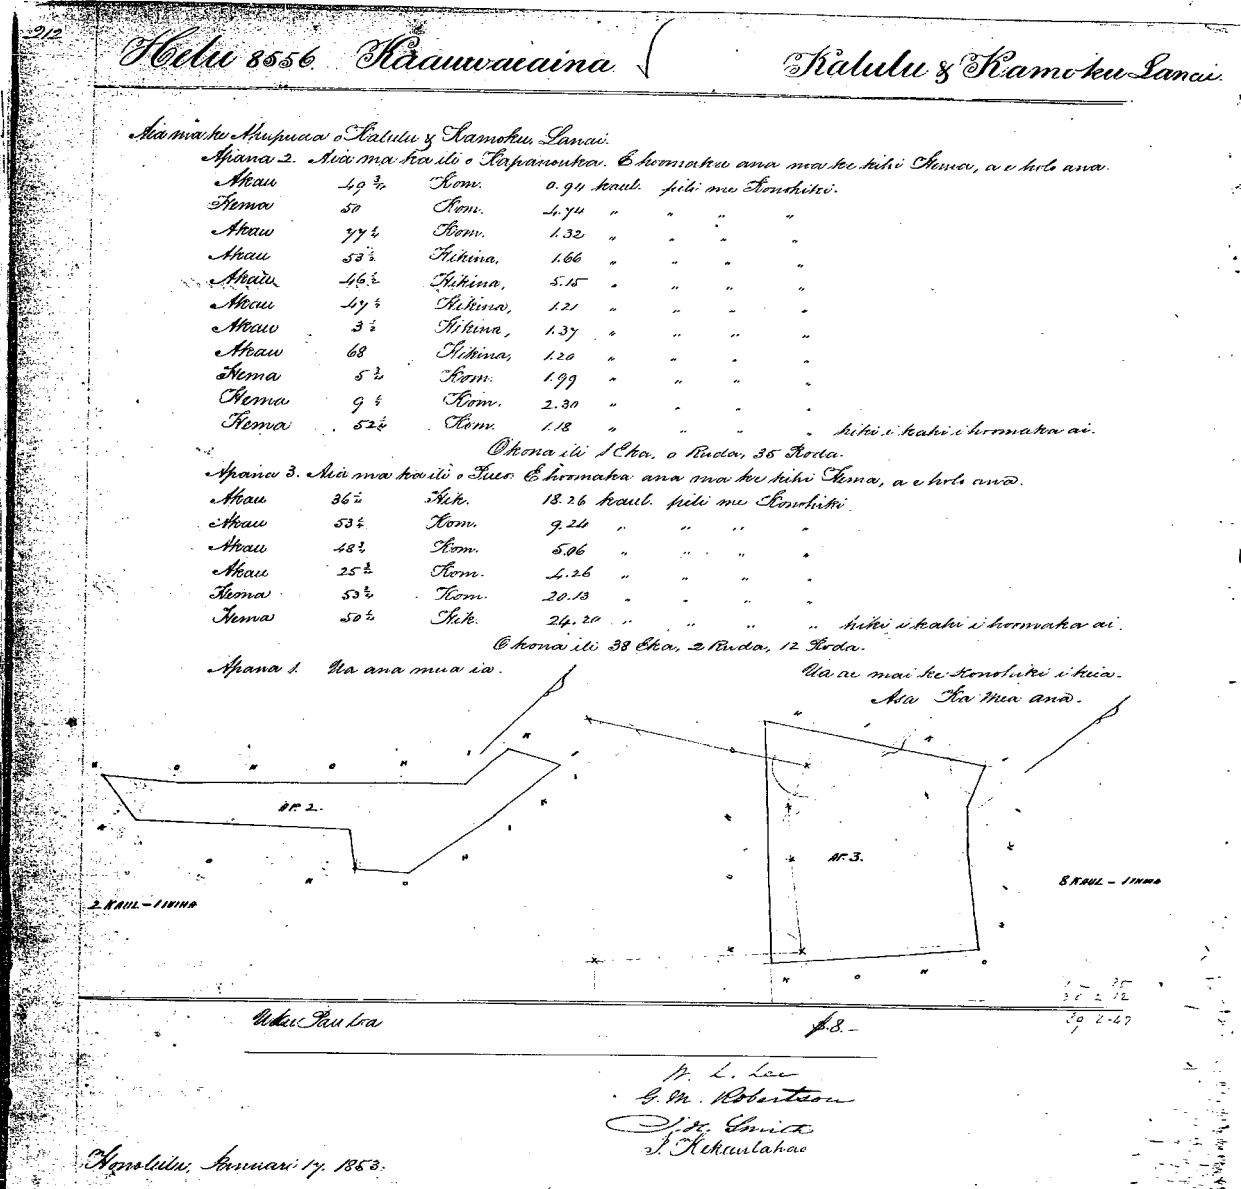 212
Helu 8556. Kaauwaeaina Kalulu & Kamoku Lanai.
Aia ma ke Ahupuaa o Kalulu & Kamoku, Lanai.
Apana 2. Aia ma ka ili o Kapanouka. E hoomaka ana ma ke kihi Hema, a e holo ana.
Akau 49 3/4 Kom. 0.94 kaul. pili me Konohiki.
Hema 50 Kom. 4.74 " " " "
Akau Kom. 1.32 " " " "
Akau Hikina, 1.66 " " " "
Akau 46 1/2 Hikina, 5.15 " " " "
Akau Hikina, 1.21 " " " "
Akau 3 1/2 Hikina, 1.37 " " " "
Akau 68 Hikina, 1.20 " " " "
Hema Kom. 1.99 " " " "
Hema Kom. 2.30 " " " "
Hema Kom. 1.18 " " " " hiki i kahi i hoomaka ai.
Okona ili 1 Eka, 0 Ruda, 35 Roda.
Apana 3. Aia ma ka ili o Pueo. E hoomaka ana ma ke kihi Hema, a e holo ana.
Akau Hik. 18.26 kaul. pili me Konohiki
Akau Kom. 9.24 " " " "
Akau Kom. 5.06 " " " "
Akau Kom. 4.26 " " " "
Hema Kom. 20.13 " " " "
Hema Hik. 24.20 " " " " hiki i kahi i hoomaka ai.
Okona ili 38 Eka, 2 Ruda, 12 Roda.
Apana 1. Ua ana mua ia. Ua ae mai ke Konohiki i keia.
Asa Ka Mea ana.
AP. 2.
AP. 3.
2 KAUL - 1 INIHA
8 KAUL - 1 INIHA
Uku Pau loa $8.-
W. L. Lee
G. M. Robertson
J. H. Smith
J. Kekaulahao
Honolulu, Januari 17. 1853.